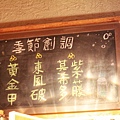 季節創調
紫藤
甚壽多
東風破
黃金甲